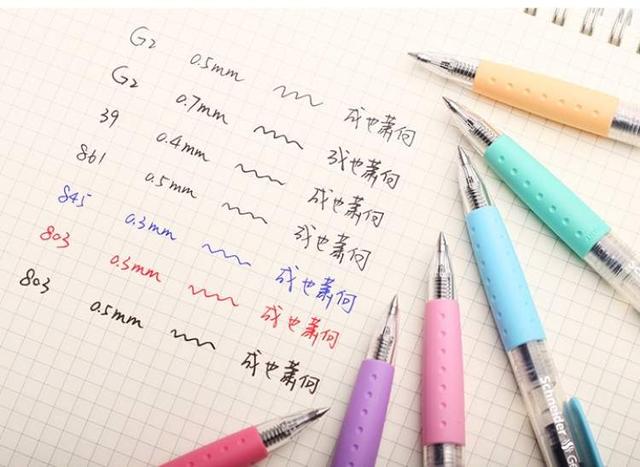 G2 0.5mm 成也萧何
G2 0.7mm 成也萧何
39 0.4mm 成也萧何
861 0.5mm 成也萧何
845 0.3mm 成也萧何
803 0.5mm 成也萧何
803 0.5mm 成也萧何
Schneider G